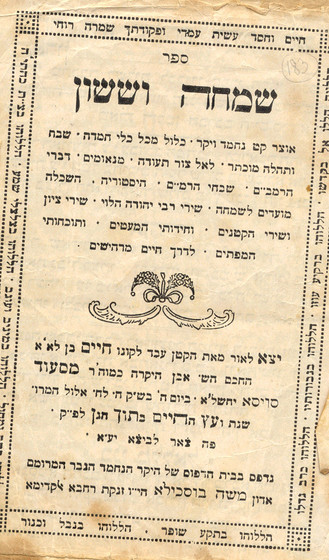 חיים וחסד עשית עמדי ופקודתך שמרה רוחי
ספר
שמחה וששון
אוצר קט נחמד ויקר · כלול מכל כלי חמדה · שבח
ותהלה מוכתר · לאל צור תעודה · מנאומים · דברי
הרמב״ם · שבחי הרמ״ם · היסטוריה · השכלה
מועדים לשמחה · שירי רבי יהודה הלוי · שירי ציון
ושירי הקטנים · וחידותי המעטים · ותוכחותי
המפתים · לדרך חיים מדהישים ·
יצא לאור מאת הקטן עבד לקונו חיים בן לא״א
החכם הש׳ אבן היקרה כמוה״ר מסעוד
סריסא יחשל״א · ביום ה׳ בש״ק ח׳ לח׳ אלול המרו׳
שנת ועץ החיים בתוך הגן לפ״ק ·
פה צאר לביצא יע״א ·
נדפס בבית הדפוס של היקר הנחמד הגבר המרומם
אדון משה בוסכילא הי״ו זנקת רחבא אקדימא
הללוהו בתקע שופר · הללוהו בנבל וכנור
הללוהו ברקיע עוזו · הללוהו בגבורותיו · הללוהו כרב גדלו